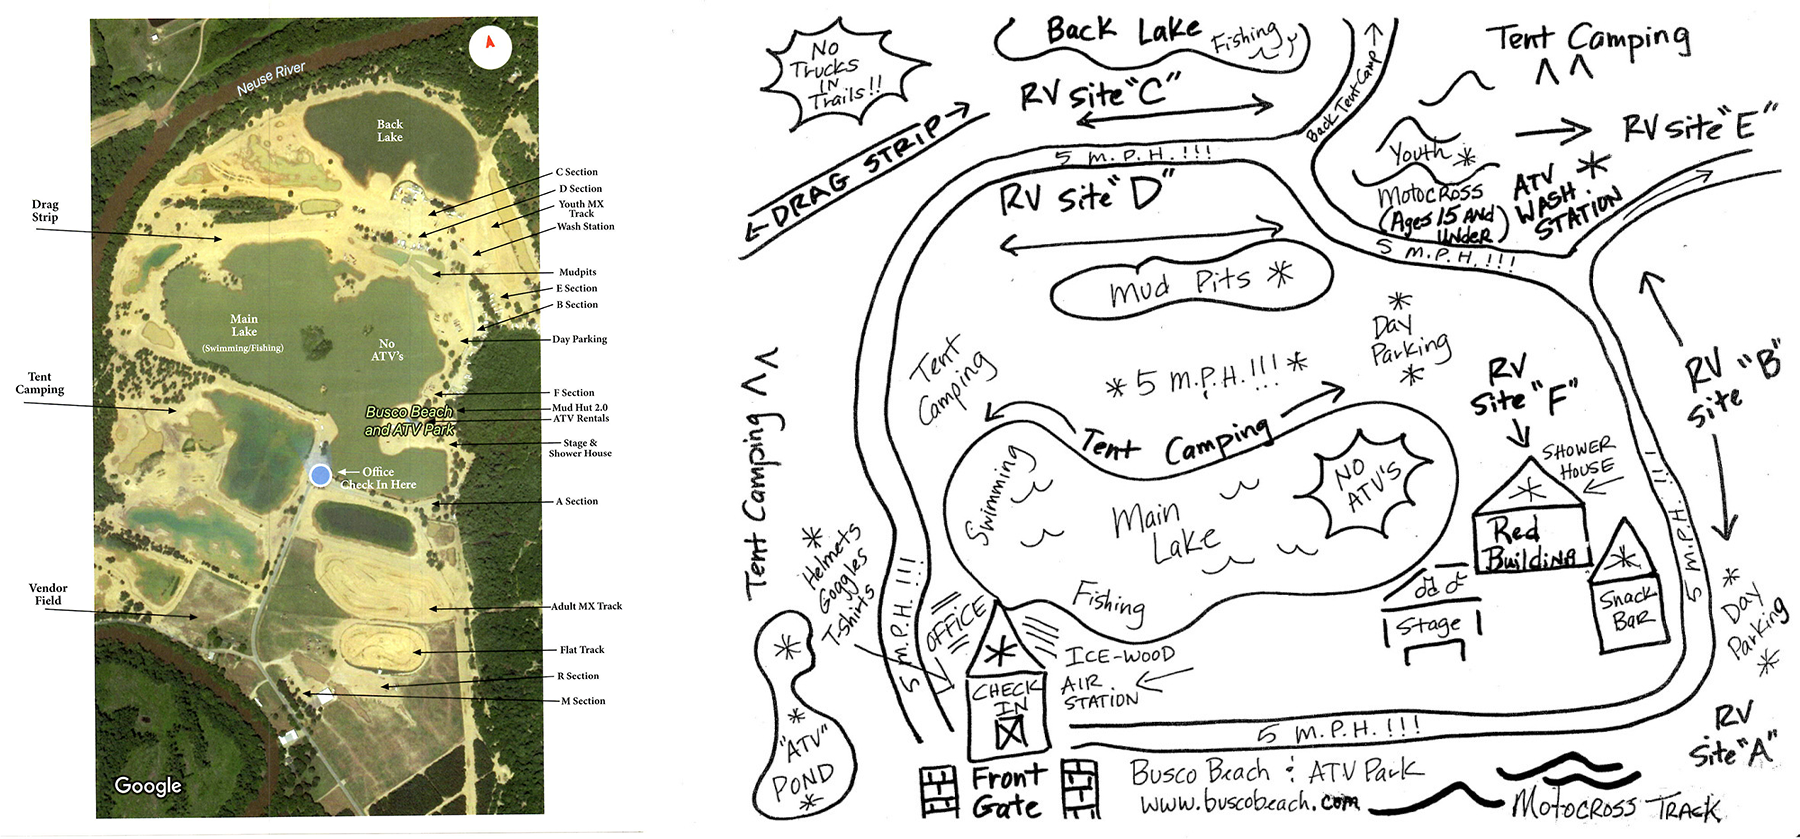 Neuse River
Back
Lake
C Section
D Section
Youth MX
Track
Wash Station
Drag
Strip
Mudpits
E Section
B Section
Main
Lake
(Swimming/Fishing)
No
ATV's
Day Parking
Tent
Camping
F Section
Mud Hut 2.0
ATV Rentals
Busco Beach
and ATV Park
Stage &
Shower House
Office
Check In Here
A Section
Vendor
Field
Adult MX Track
Flat Track
R Section
M Section
Google
No
Trucks
IN
Trails!!
Back Lake
Fishing
RV Site "C"
DRAG STRIP
5 M.P.H.!!!
Back Tent Camp
Tent Camping
RV Site "E"
Youth
Motocross
(Ages 15 AND
UNDER)
ATV
WASH
STATION
5 M.P.H.!!!
RV Site "D"
Mud Pits
Day
Parking
Tent
Camping
5 M.P.H.!!!
RV
Site "F"
RV "B"
Site
Tent Camping
Tent Camping
Swimming
Main
Lake
NO
ATV'S
Fishing
SHOWER
HOUSE
Red
Building
Snack
Bar
Stage
5 M.P.H.!!!
Day
Parking
Helmets
Goggles
T-shirts
5 M.P.H.!!!
OFFICE
CHECK
IN
ICE-WOOD
AIR
STATION
"ATV"
POND
5 M.P.H.!!!
RV
Site "A"
Front
Gate
Busco Beach & ATV Park
www.buscobeach.com
Motocross Track